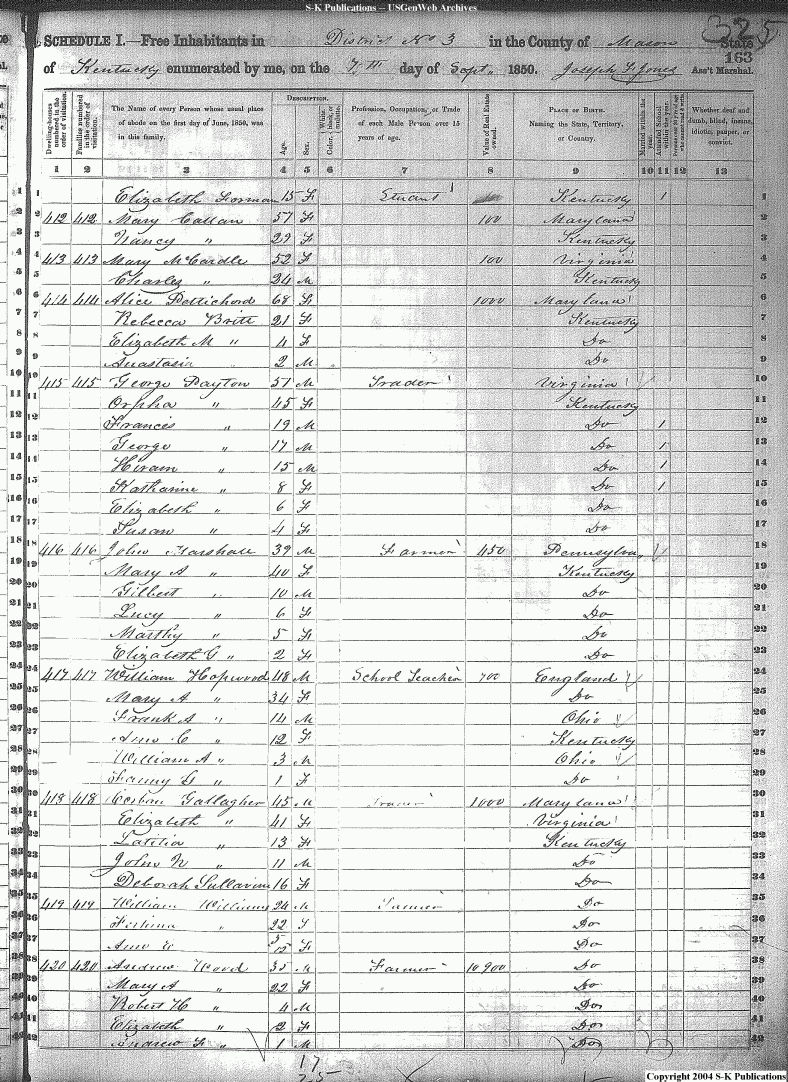 S-K Publications -- USGenWeb Archives
325
SCHEDULE I.—Free Inhabitants in District No 3 in the County of Mason State
163
of Kentucky enumerated by me, on the 7th day of Sept. 1850. Joseph F. Jones Ass't Marshal.
Dwelling-houses numbered in the order of visitation. Families numbered in the order of visitation. The Name of every Person whose usual place of abode on the first day of June, 1850, was in this family. DESCRIPTION. Age. Sex. Color, White, black, or mulatto. Profession, Occupation, or Trade of each Male Person over 15 years of age. Value of Real Estate owned. PLACE OF BIRTH. Naming the State, Territory, or Country. Married within the year. Attended School within the year. Whether deaf and dumb, blind, insane, idiotic, pauper, or convict.
1 2 3 4 5 6 7 8 9 10 11 12 13
1 Elizabeth Forman 15 F Student Kentucky 1 1
2 412 412 Mary Callan 57 F 100 Maryland 2
3 Nancy " 29 F Kentucky 3
4 413 413 Mary McCardle 52 F 100 Virginia 4
5 Charles " 24 M Kentucky 5
6 414 414 Alice Pettichord 68 F 1000 Maryland 6
7 Rebecca Britt 21 F Kentucky 7
8 Elizabeth M " 4 F Do 8
9 Anastasia " 2 M Do 9
10 415 415 George Dayton 51 M Trader Virginia 10
11 Orpha " 45 F Kentucky 11
12 Francis " 19 M Do 1 12
13 George " 17 M Do 1 13
14 Hiram " 15 M Do 1 14
15 Katharine " 8 F Do 1 15
16 Elizabeth " 6 F Do 16
17 Susan " 4 F Do 17
18 416 416 John Marshall 39 M Farmer 450 Pennsylva 18
19 Mary A " 40 F Kentucky 19
20 Gilbert " 10 M Do 20
21 Lucy " 6 F Do 21
22 Marthy " 5 F Do 22
23 Elizabeth G " 2 F Do 23
24 417 417 William Hopwood 48 M School Teacher 700 England 24
25 Mary A " 34 F Do 25
26 Frank A " 14 M Ohio 26
27 Ann C " 12 F Kentucky 27
28 William A " 3 M Ohio 28
29 " 1 F Do 29
30 418 418 Gallagher 45 M 1000 Maryland 30
31 Elizabeth " 41 F Virginia 31
32 Latitia " 13 F Kentucky 32
33 John N " 11 M Do 33
34 Deborah Sullavin 16 F Do 34
35 419 419 William Williams 24 M Do 35
36 " 22 F Do 36
37 Ann E 5/12 F Do 37
38 420 420 Andrew Wood 35 M Farmer 10900 Do 38
39 Mary A " 22 F Do 39
40 Robert H " 4 M Do 40
41 Elizabeth " 2 F Do 41
42 Andrew F " 1 M Do 42
17
25
Copyright 2004 S-K Publications